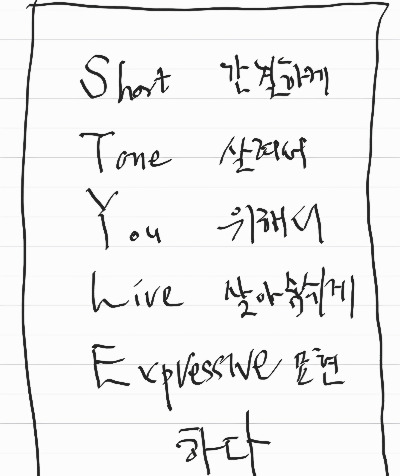 Short 간결하게
Tone 살려서
You 위해서
Live 살아숨쉬게
Expressive 표현
하다